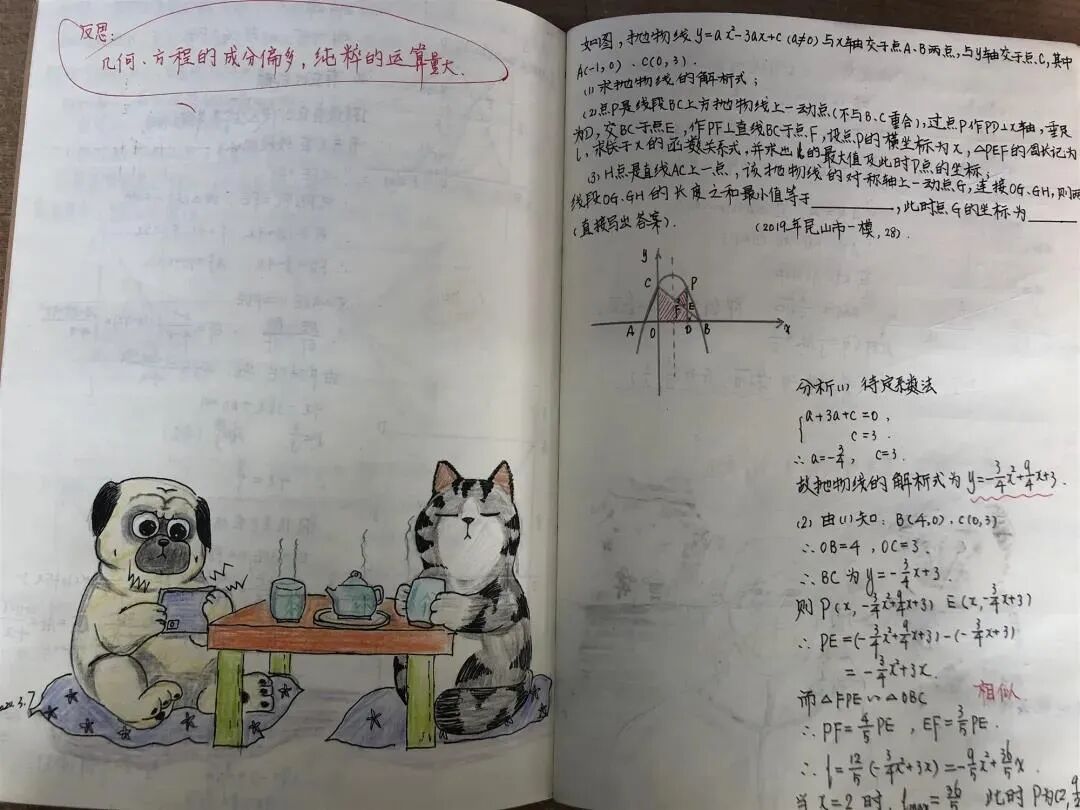 反思:
几何、方程的成分偏多,纯粹的运算量大.
如图,抛物线y=ax²-3ax+c(a≠0)与x轴交于点A、B两点,与y轴交于点C,其中
A(-1,0)、C(0,3).
(1)求抛物线的解析式;
(2)点P是线段BC上方抛物线上一动点(不与B、C重合),过点P作PD⊥x轴,垂足
为D,交BC于点E,作PF⊥直线BC于点F,设点P的横坐标为x,△PEF的周长记为
l,求l关于x的函数关系式,并求出l的最大值及此时P点的坐标;
(3)H点是直线AC上一点,该抛物线的对称轴上一动点G,连接OG、GH,则两
线段OG、GH的长度之和最小值等于______,此时点G的坐标为______
(直接写出答案). (2019年昆山市一模,28).
y
C P
F E
A O D B x
分析(1) 待定系数法
{a+3a+c=0,
c=3.
∴a=-3/4, c=3.
故抛物线的解析式为y=-3/4x²+9/4x+3.
(2)由(1)知:B(4,0)、C(0,3)
∴OB=4,OC=3.
∴BC为y=-3/4x+3.
则P(x,-3/4x²+9/4x+3) E(x,-3/4x+3)
∴PE=(-3/4x²+9/4x+3)-(-3/4x+3)
=-3/4x²+3x.
而△FPE∽△OBC 相似
∴PF=4/5PE,EF=3/5PE.
∴l=12/5(-3/4x²+3x)=-9/5x²+36/5x.
当x=2时,lmax=36/5 此时P为(2,9